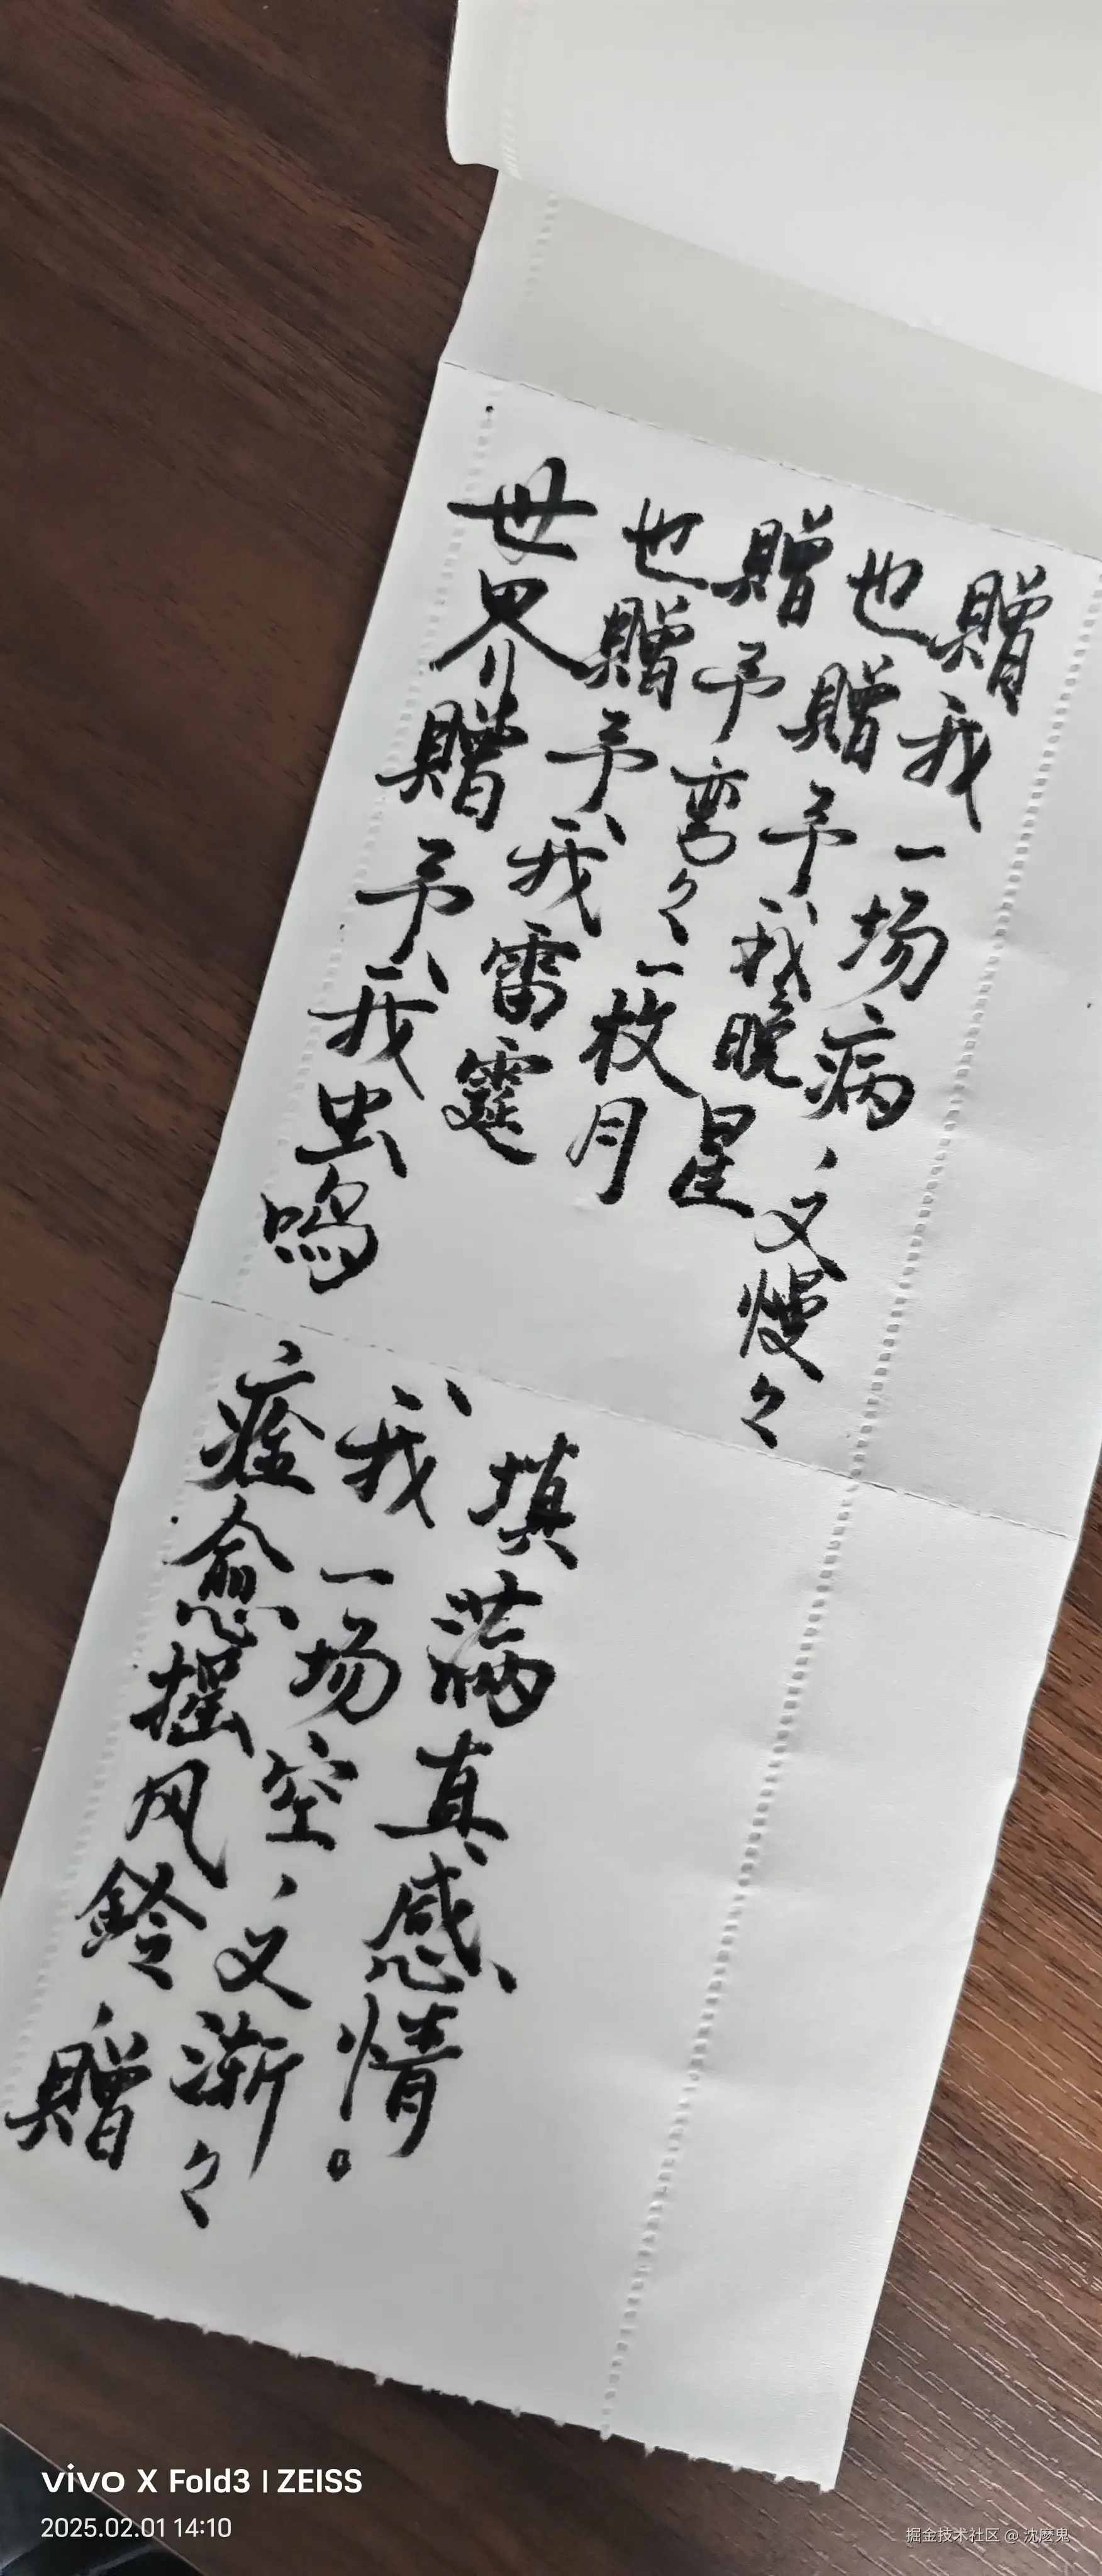 世界贈予我虫鸣
也贈予我雷霆
贈予弯々一枚月
也贈予我晚星
贈我一场病，又慢々
痊愈摇风鈴，贈
我一场空，又渐々
填满真感情。
vivo X Fold3 | ZEISS
2025.02.01 14:10
掘金技术社区 @ 沈麽鬼